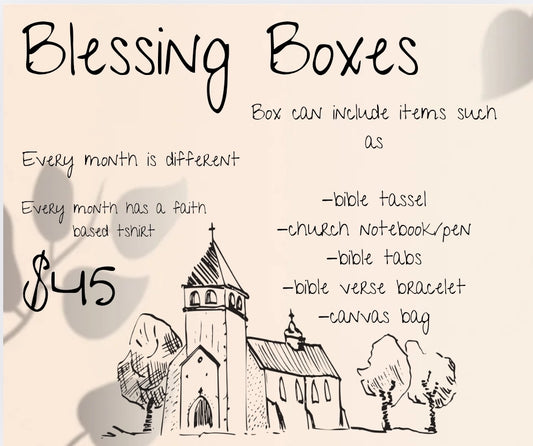 Blessing Boxes
Box can include items such
as
Every month is different
Every month has a faith
based tshirt
$45
-bible tassel
-church notebook/pen
-bible tabs
-bible verse bracelet
-canvas bag